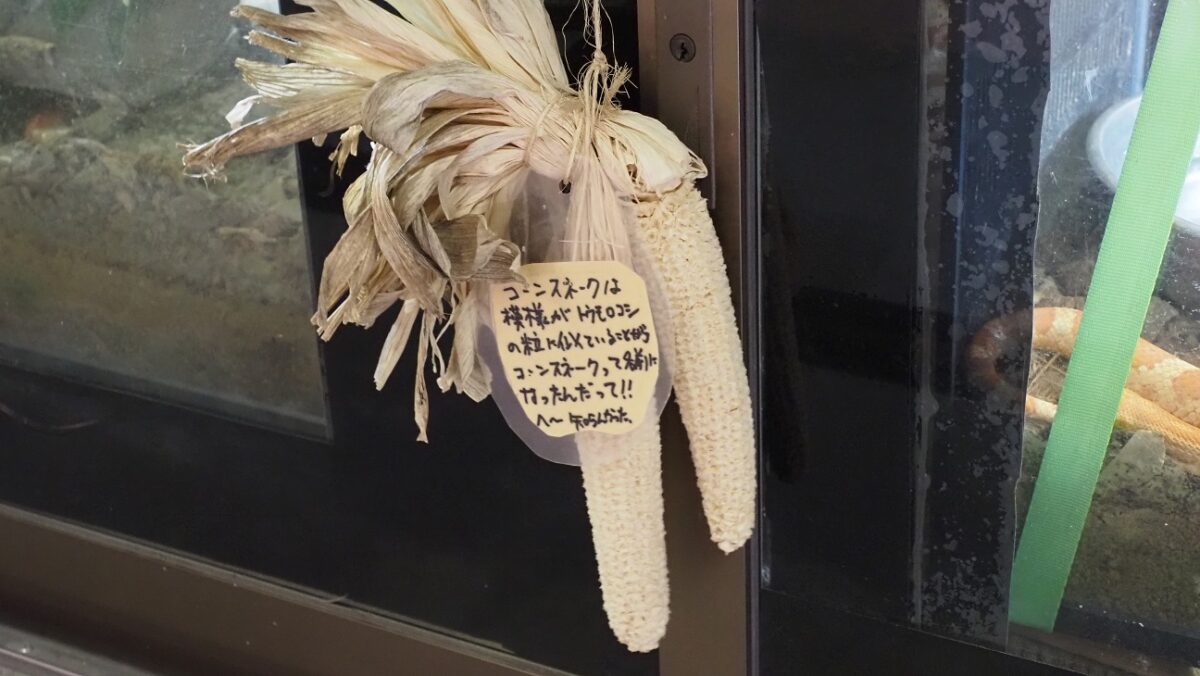 コーンスネークは
模様がトウモロコシ
の粒に似ていることから
コーンスネークって名前に
なったんだって!!
へ〜 知らんかった